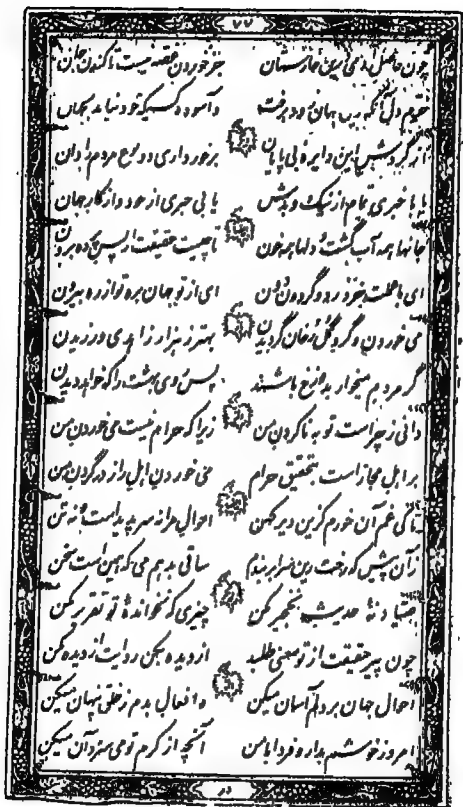 ٧٧
چون حاصل آدمی درین خارستان جز خوردن غصه نیست تا کندن جان
خرم دل آنکه زین جهان زود برفت و آسوده کسیکه خود نیامد بجهان
از گردش این دایره بی پایان برخورداری دو نوع مردم را دان
یا با خبری تمام از نیک و بدش یا بی خبری از خود و از کار جهان
جانها همه آب گشت و دلها همه خون تا چیست حقیقت از پس پرده برون
ای با علمت خرد رد و گردون دون ای از تو جهان پره تو از پره برون
می خوردن و گرد گلرخان گردیدن بهتر ز هزار زاهدی ورزیدن
گر مردم میخوار بدوزخ باشند پس روی بهشت را که خواهد دیدن
دانی ز چه راست توبه نا کردن من زیرا که حرام نیست می خوردن من
بر اهل مجاز است بتحقیق حرام می خوردن اهل راز در گردن من
تا کی غم آن خورم کزین دیر کهن احوال مرا نه سر پدید است و نه تن
زان پیش که رخت زین سرا بربندم ساقی بدهم می که همین است سخن
حدیث چیزی که نخوانده تو تقریر مکن
چون پیر حقیقت از تو معنی طلبد از دیده بکن روایت از دیده مکن
احوال جهان بر دلم آسان میکن و افعال بدم ز خلق پنهان میکن
امروز خوشم بدار و فردا با من آنچه از کرم تو می سزد آن میکن
در